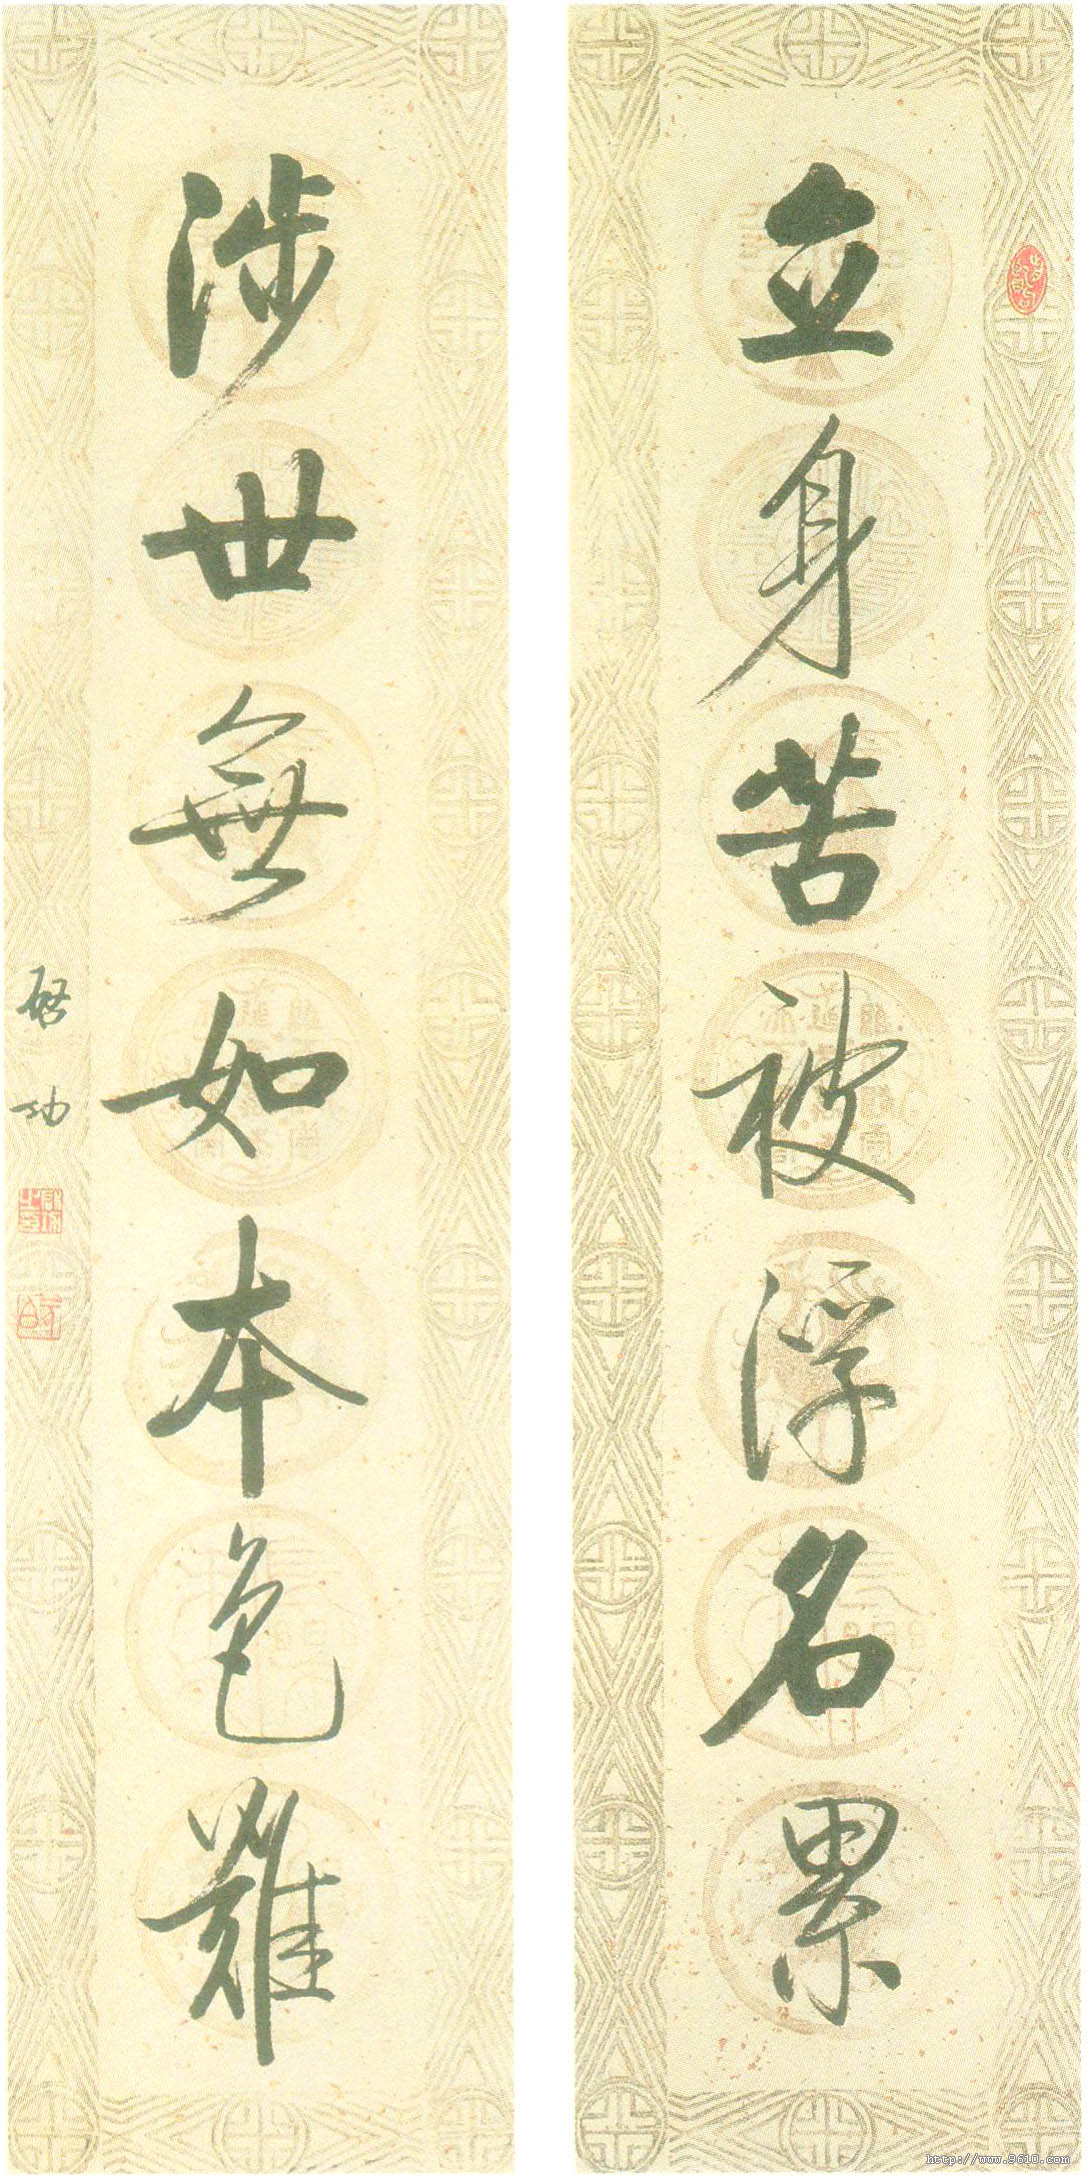 立身苦被浮名累
涉世無如本色難
啓功
http://www.9610.com